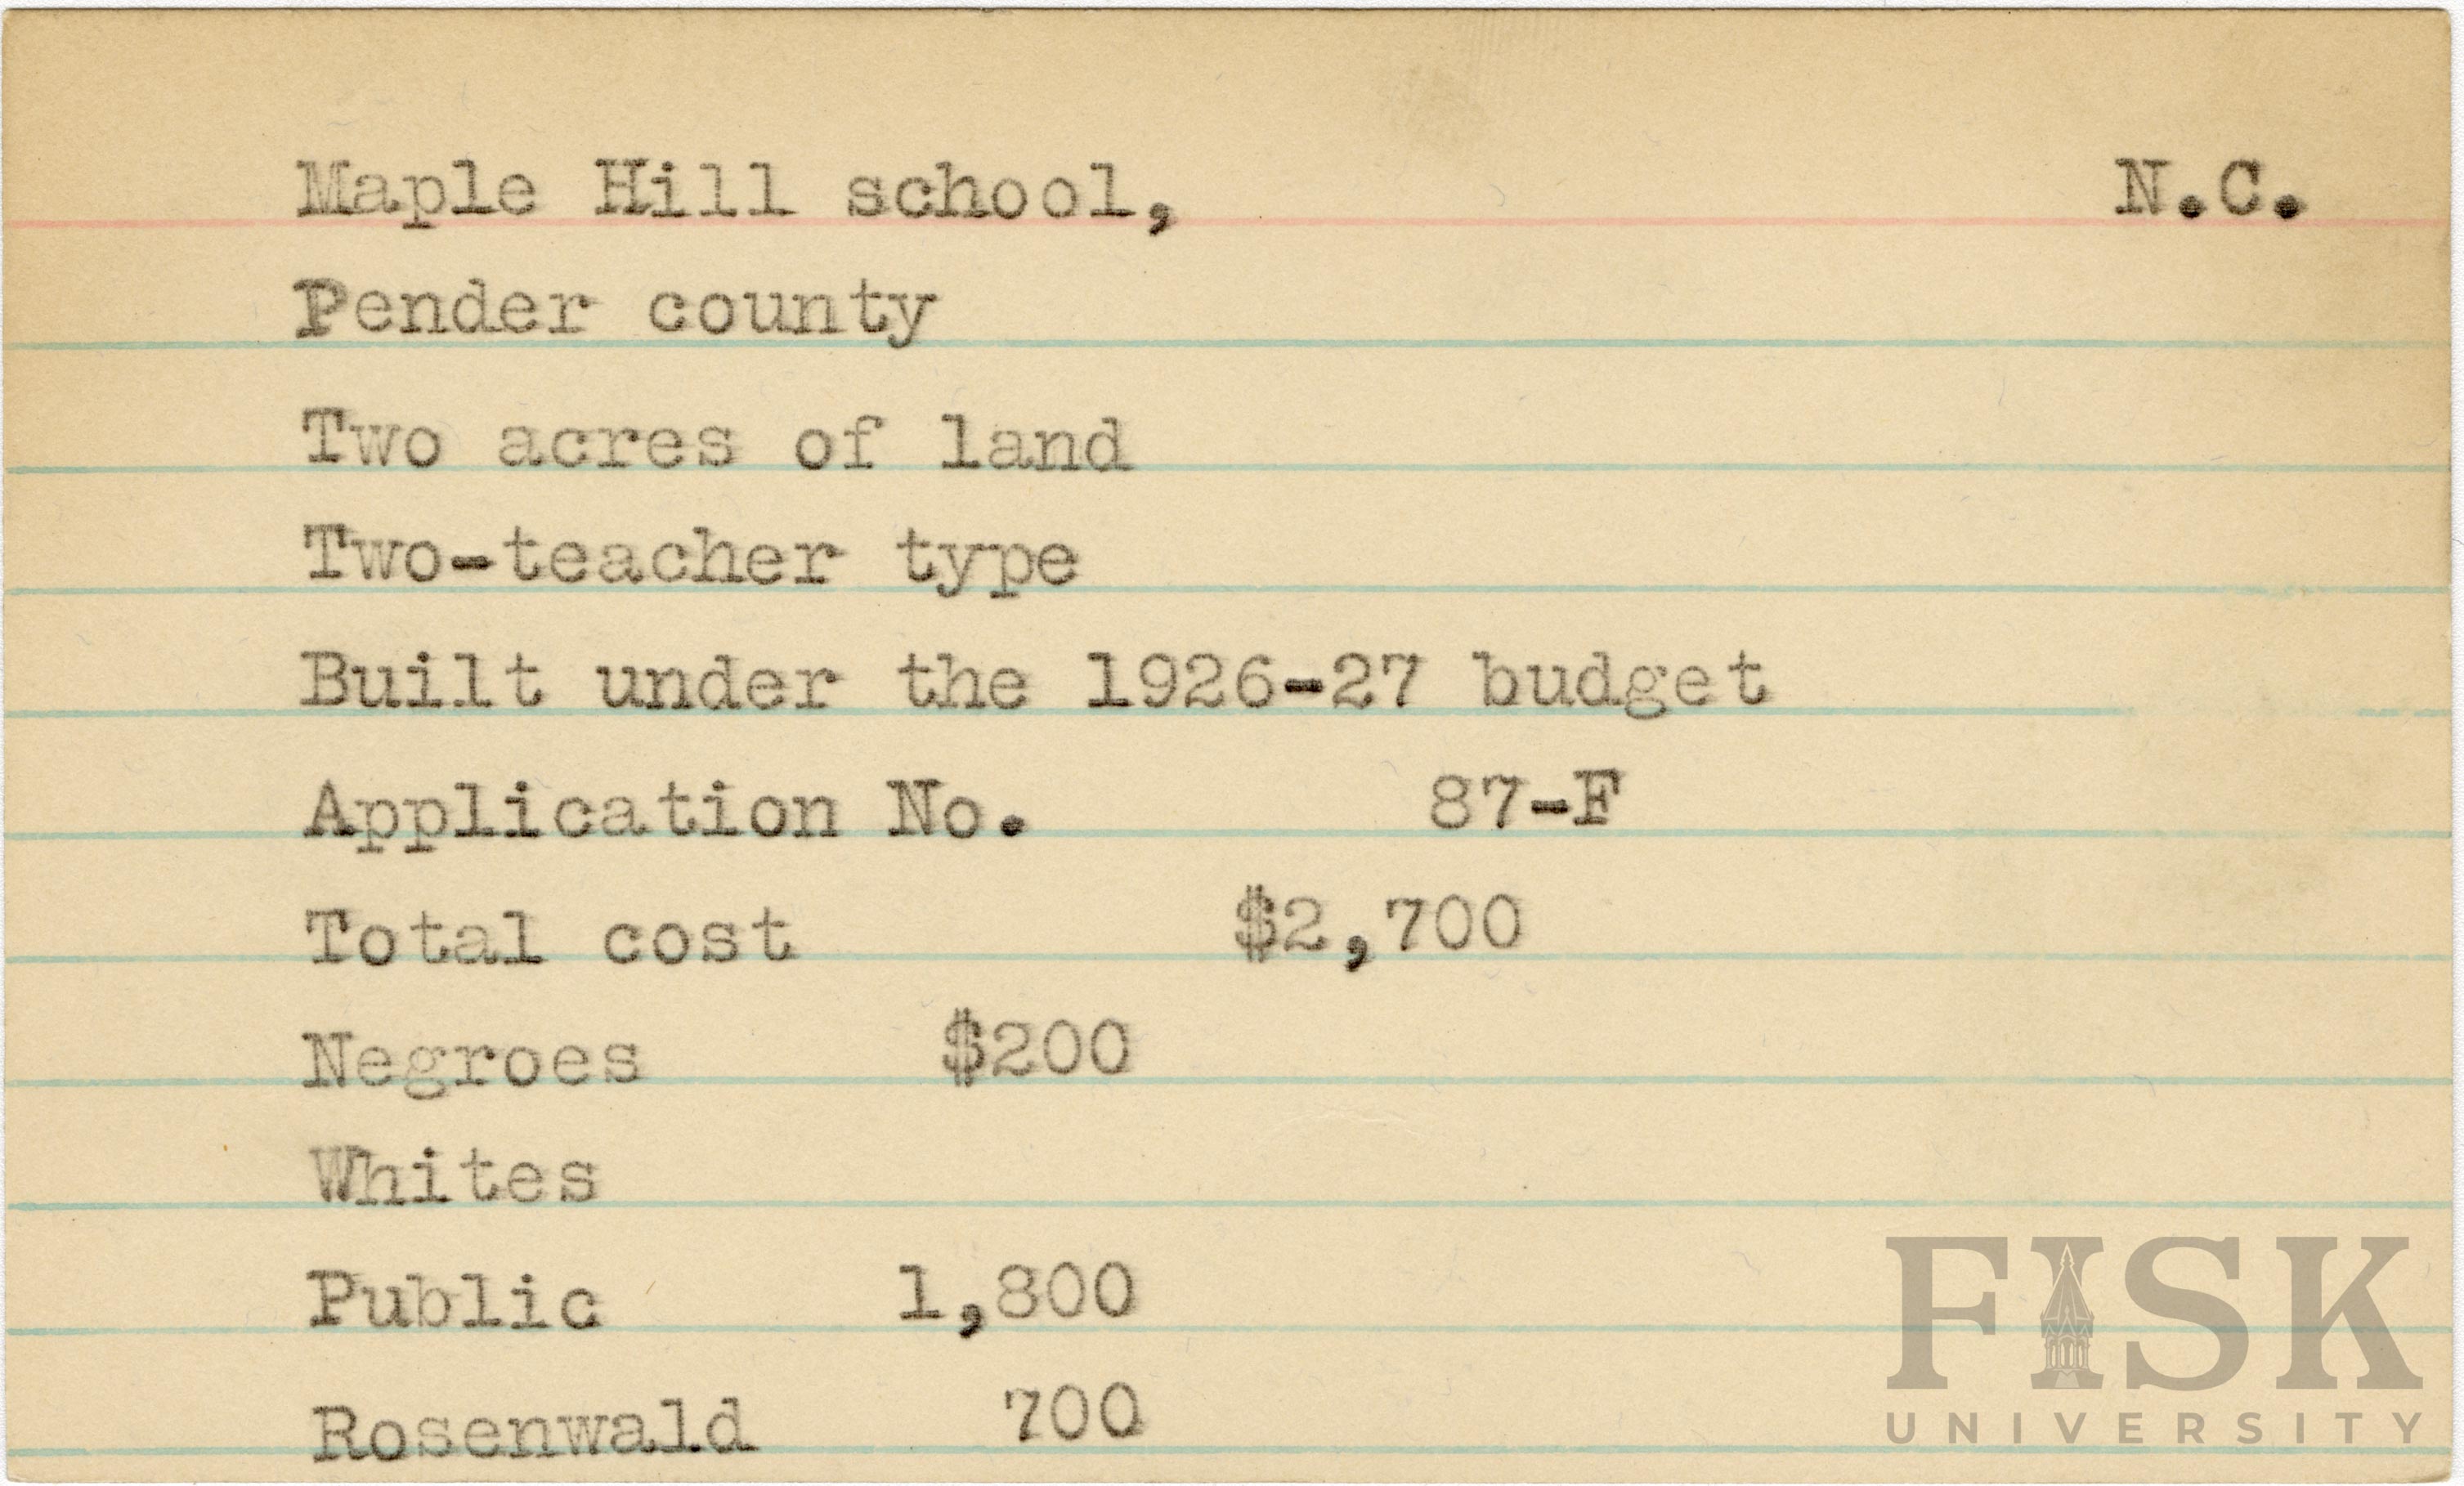 Maple Hill school, N.C.
Pender county
Two acres of land
Two-teacher type
Built under the 1926-27 budget
Application No. 87-F
Total cost $2,700
Negroes $200
Whites
Public 1,800
Rosenwald 700
FISK
UNIVERSITY